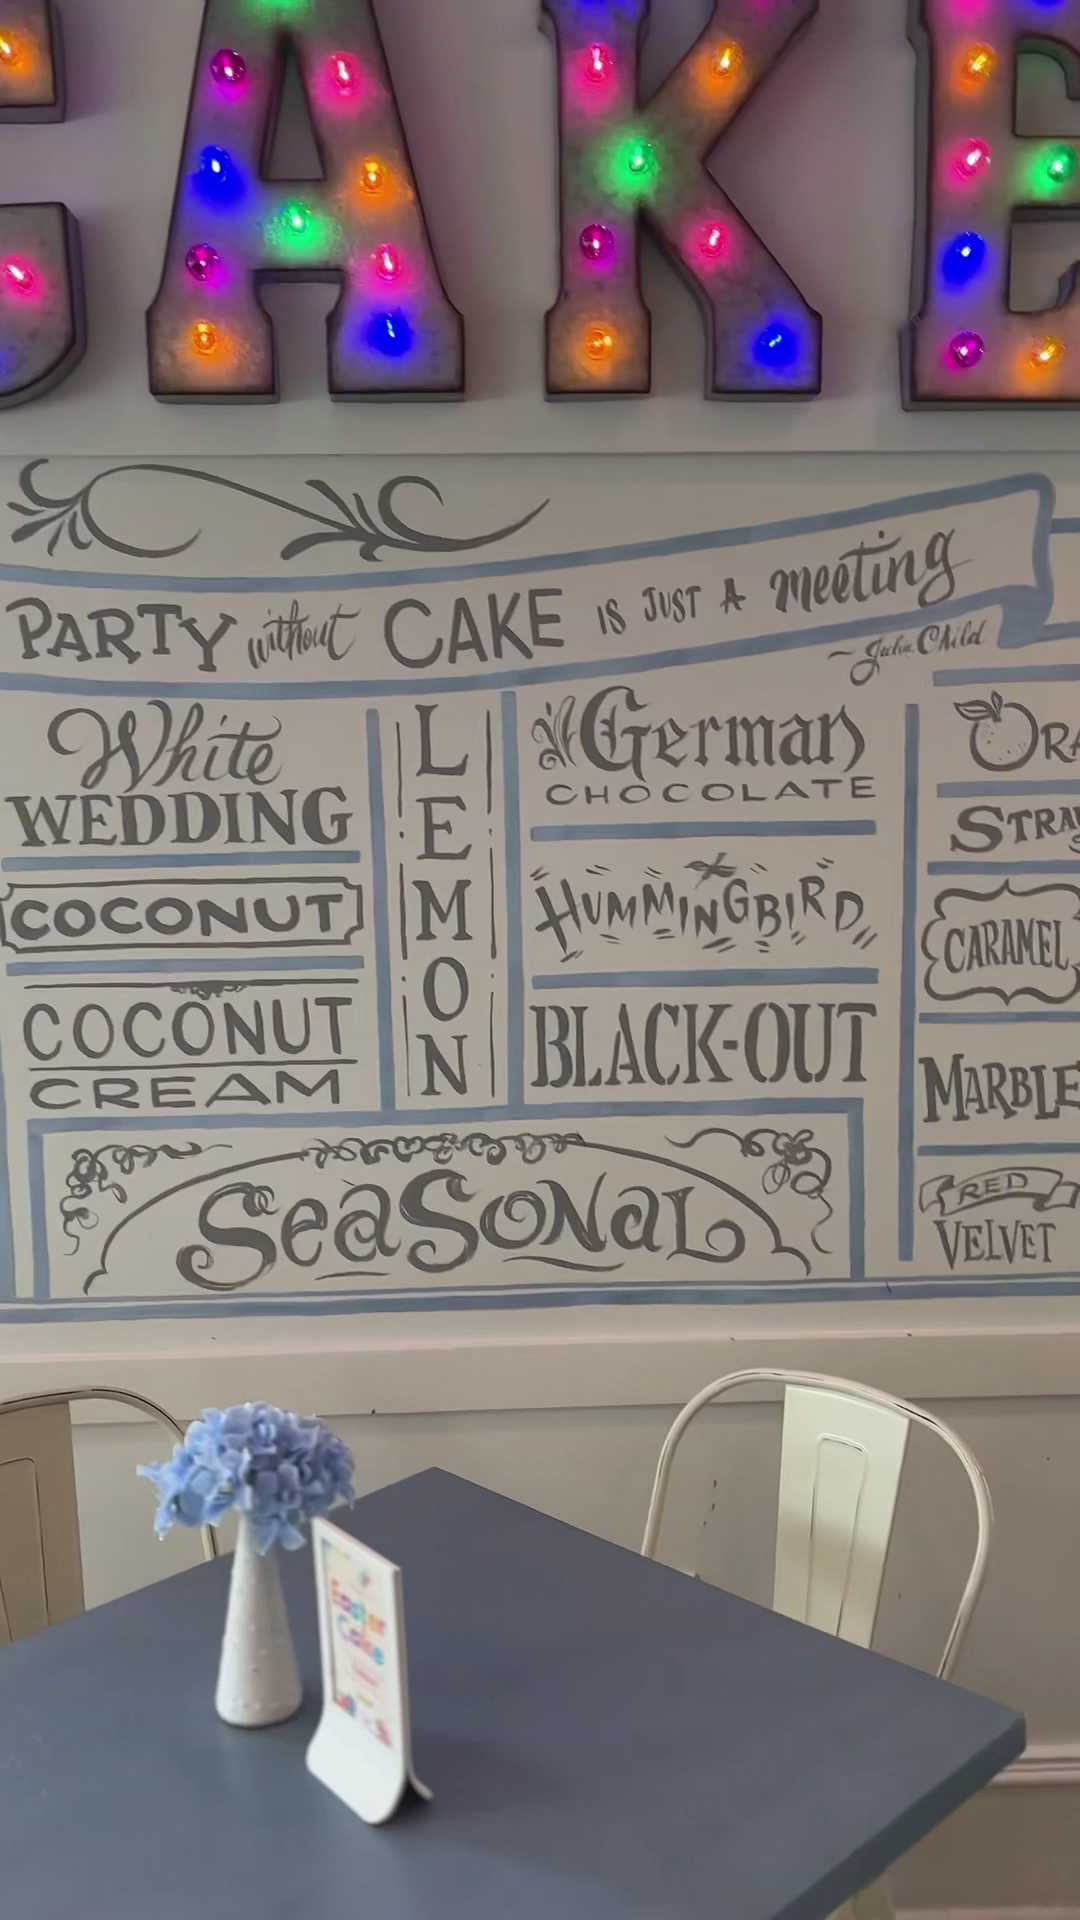 CAKE
PARTY without CAKE IS JUST A meeting
~ Julia Child
White
WEDDING
COCONUT
COCONUT
CREAM
LEMON
German
CHOCOLATE
HUMMINGBIRD
BLACK-OUT
SeaSoNaL
ORA
STRAW
CARAMEL
MARBLE
RED
VELVET
Easter
Cake